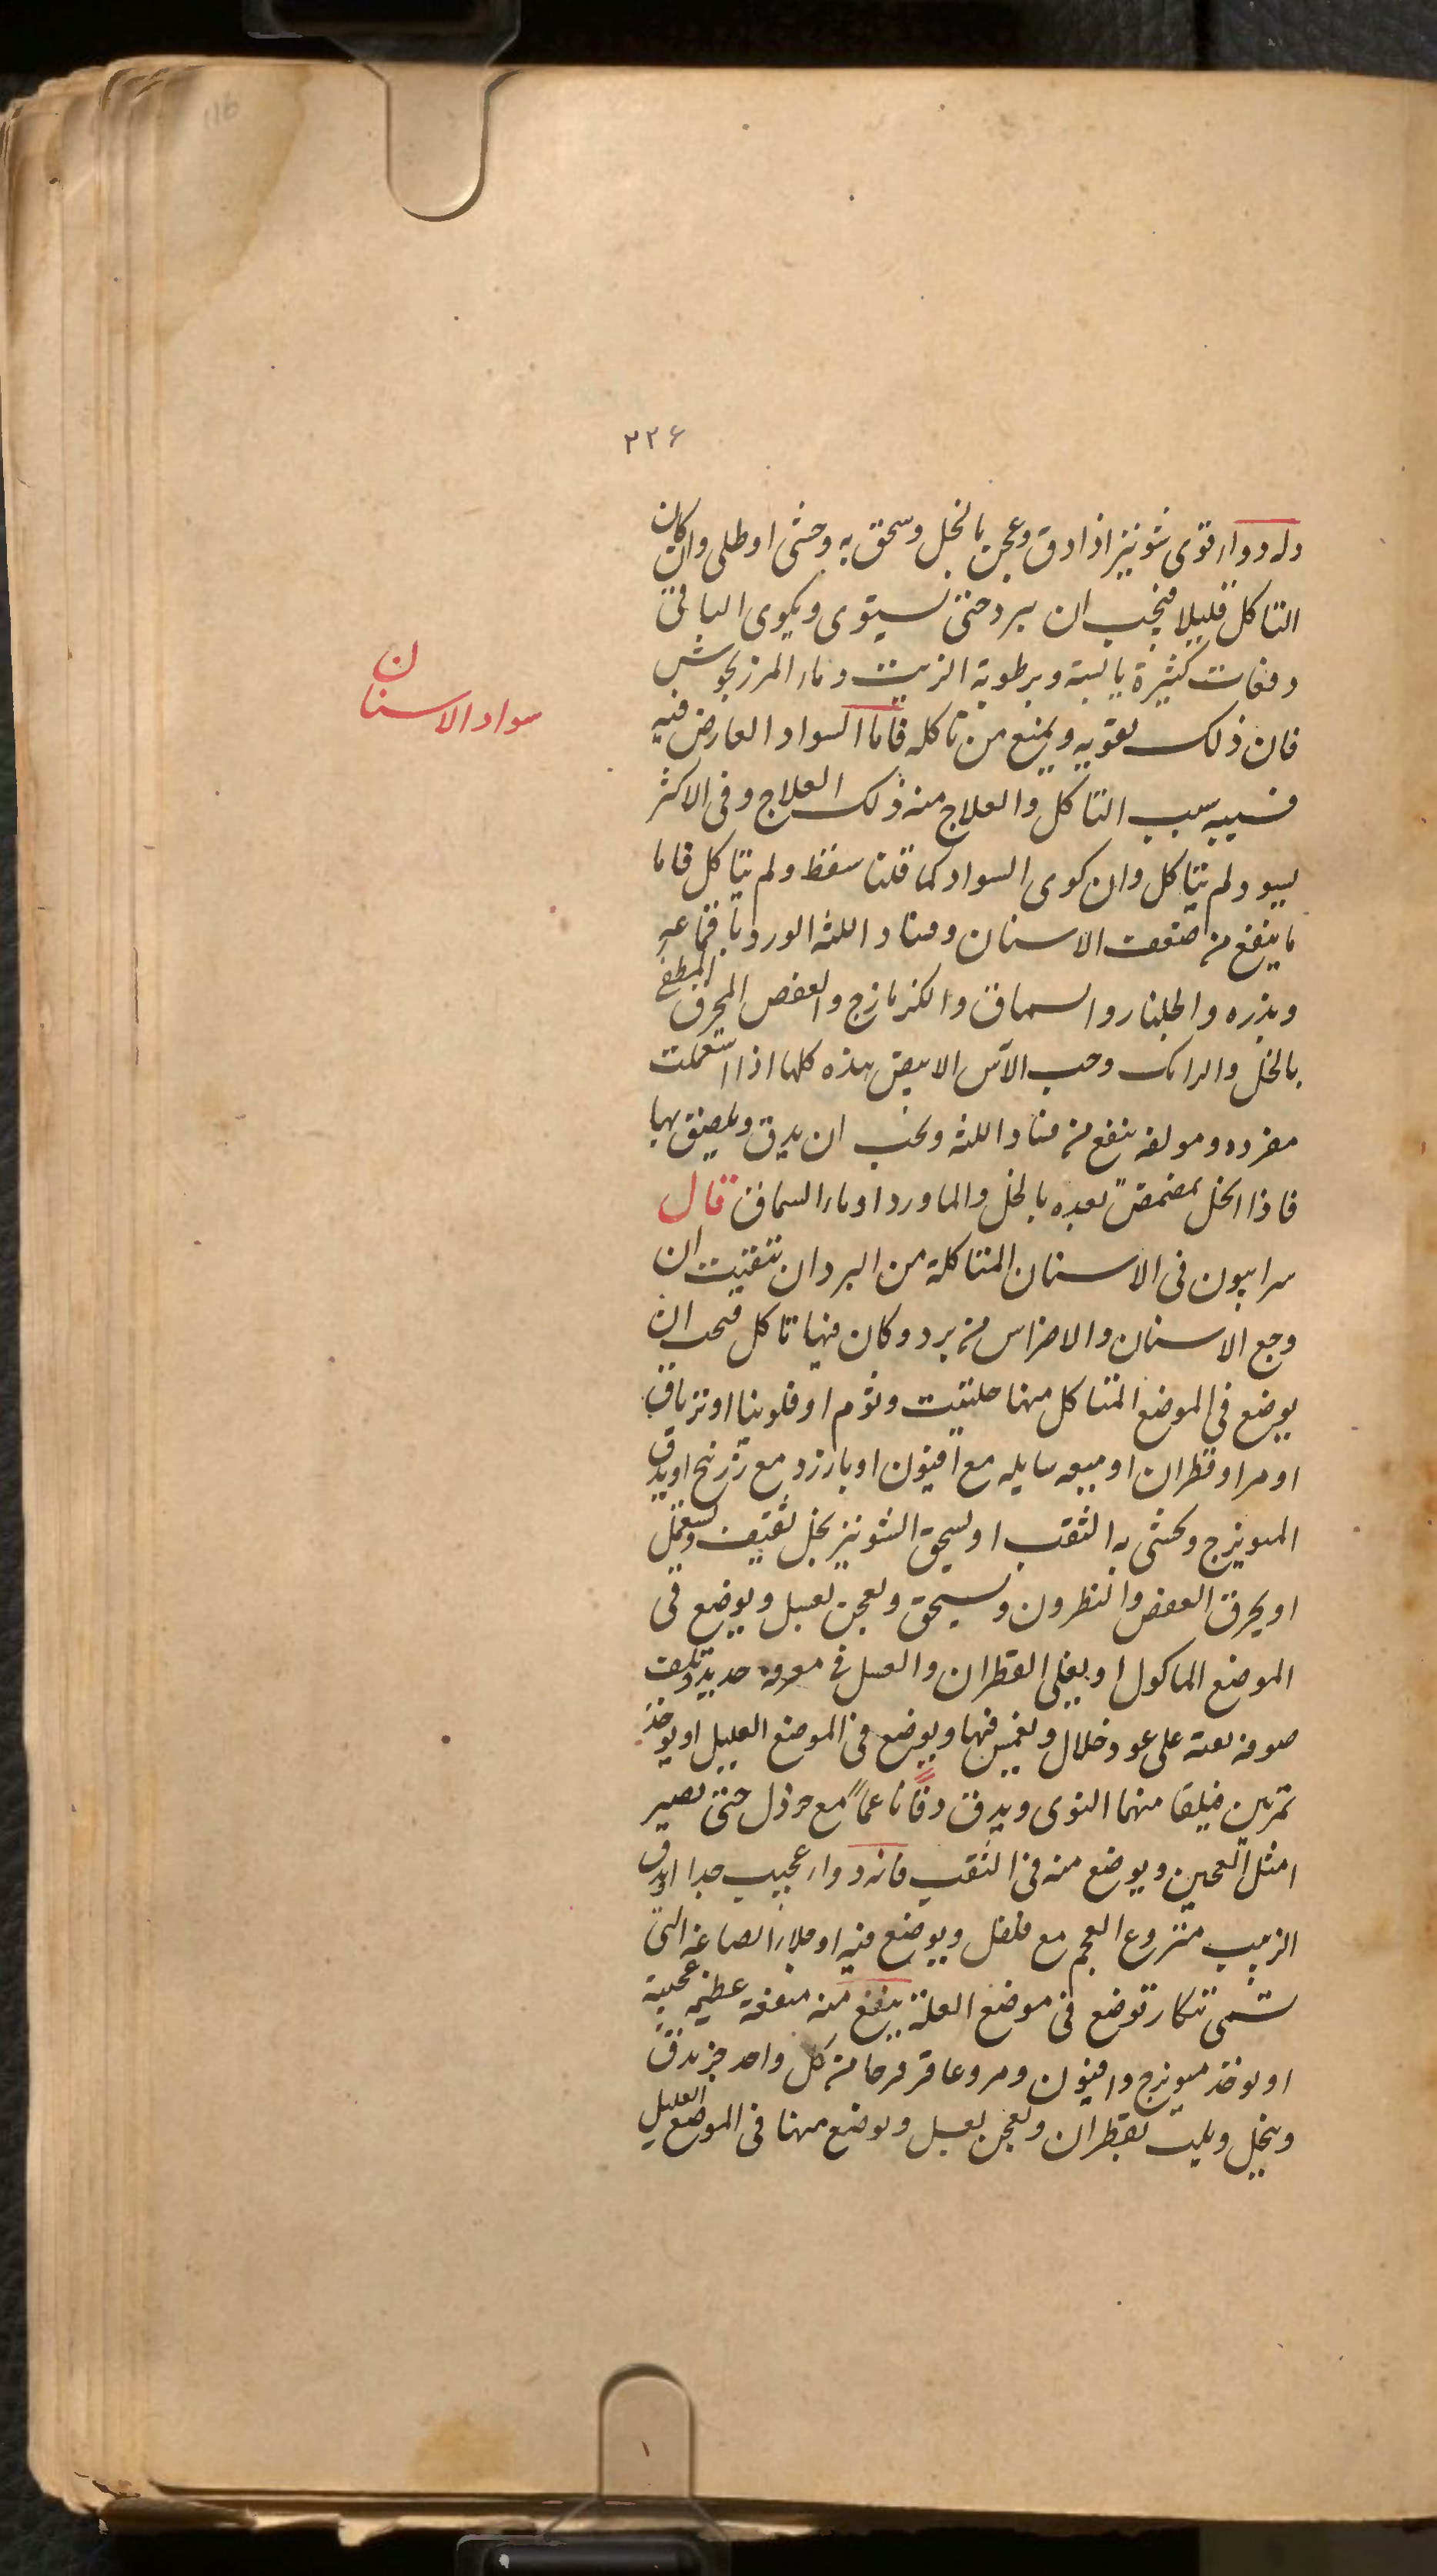 ٢٢۶
وله دواء قوى شونيز اذا دق وعجن بالخل وسحق به وحشى او طلى وان كان
التاكل قليلا فيجب ان يبرد حتى يستوى ويكوى الباقى
دفعات كثيرة يابسة وبرطوبة الزيت وماء المرزنجوش
فان ذلك يقويه ويمنع من تاكله فاما السواد العارض فيه
سواد الاسنان
فسببه سبب التاكل والعلاج منه ذلك العلاج وفى الاكثر
يسود ولم يتاكل وان كوى السواد كما قلنا سقط ولم يتاكل فاما
ما ينفع من ضعف الاسنان وفساد اللثه الورد باقماعه
وبذره والجلنار والسماق والكزمازج والعفص المحرق المطفى
بالخل والرامك وحب الآس الابيض هذه كلها اذا استعملت
مفرده ومولفه ينفع من فساد اللثه ويجب ان يدق ويلصق بها
فاذا انحل تمضمض بعده بالخل والماورد او ماء السماق قال
سرابيون فى الاسنان المتاكلة من البرد ان تفتيت ان
وجع الاسنان والاضراس من برد وكان فيها تاكل فيجب ان
يوضع فى الموضع المتاكل منها حلتيت وثوم او فلونيا او ترياق
او مر او قطران او ميعه سايله مع افيون او بارزد مع زرنيخ او يدق
الميويزج ويحشى به الثقب او يسحق الشونيز بخل ثقيف ويستعمل
او يحرق العفص والنطرون ويسحق ويعجن بعسل ويوضع فى
الموضع الماكول او يغلى القطران والعسل فى مغرفه حديد وتلف
صوفه نقيه على عود خلال ويغمس فيها ويوضع فى الموضع العليل او يوخذ
تمرتين فيلقا منهما النوى ويدق دقا ناعما مع خردل حتى يصير
امثل العجين ويوضع منه فى الثقب فانه دواء عجيب جدا او يدق
الزبيب منزوع العجم مع فلفل ويوضع فيه او ملاء الصاغه التى
تسمى تنكار توضع فى موضع العلة ينفع منه منفعة عظيمه عجيبة
او يوخذ ميويزج وافيون ومر وعاقرقرحا من كل واحد جز يدق
وينخل ويلت بقطران ويعجن بعسل ويوضع منها فى الموضع العليل